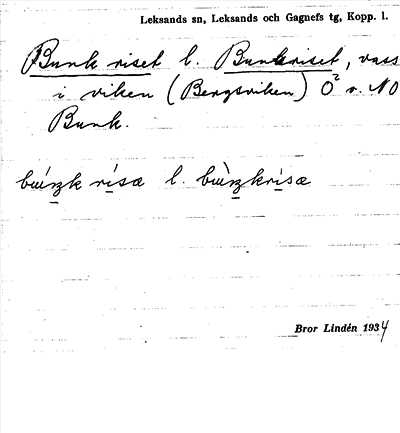 Leksands sn, Leksands och Gagnefs tg, Kopp. l.
Bunk riset l. Bunkriset, vass
i viken (Bergsviken) Ö² v. NO
Bunk.
Bror Lindén 1934